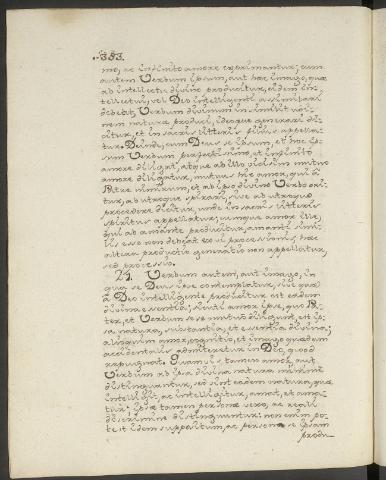 .353.
mo, ac infinito amore exprimantur; cum
autem Verbum ipsum, aut hæc imago, quæ
ab intellectu divino producitur, eidem in-
tellectui, vel Deo intelligenti assimilari
debeat, Verbum divinum in similitudi-
nem naturæ produci, ideoque generari di-
citur, et in sacris litteris filius appella-
tur. Deinde, cum Deus se ipsum, et hoc ip-
sum Verbum perfectissimo, et infinito
amore diligat, atque ab illo vicissim mutuo
amore diligatur, mutuus hic amor, qui a
Patre nimirum, et ab ipso divino Verbo ori-
tur, ab utroque spirari, sive ab utroque
procedere dicitur, unde in sacris litteris
spiritus appellatur; cumque amor ille,
qui ab amante producitur, amanti simi-
lis esse non debeat ex vi processionis, hæc
altera productio generatio non appellatur,
sed processio.
21. Verbum autem, aut imago, in
qua se Deus ipse contemplatur, sive quæ
a Deo intelligente producitur est eadem
divina essentia; sicuti amor ipse, quo Pa-
ter, et Verbum se se mutuo diligunt, est ip-
sa natura, substantia, et essentia divina;
alioquin amor, cognitio, et imago quædam
accidentalis admitteretur in Deo, quod
repugnat. Quamvis tamen amor, aut
Verbum ab ipsa divina natura minime
distinguantur, sed sint eadem natura, quæ
intelligit, ac intelligitur, amat, et ama-
tur: ipsæ tamen personæ vero, ac reali
discrimine distinguuntur: non enim po-
test idem suppositum, ac persona se ipsam
produ-